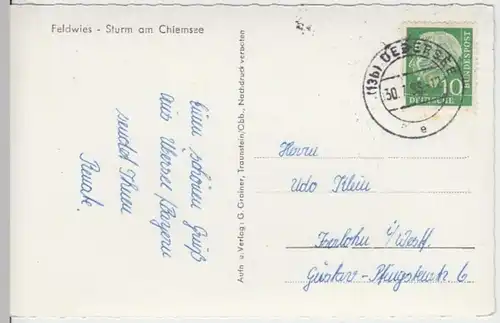 Feldwies - Sturm am Chiemsee
Einen schönen Gruß
aus Wessel /Bayern
sendet Ihnen
Renate.
Aufn u.Verlag: G. Greiner, Traunstein/Obb., Nachdruck verboten
(13b) ÜBERSEE
30.
e
10
DEUTSCHE
BUNDESPOST
Herrn
Udo Klein
Iserlohn i/Westf.
Gustav-
6